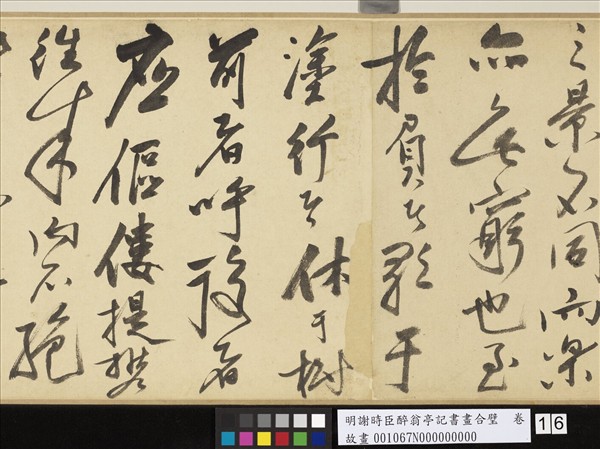 之景不同而樂
亦無窮也至
於負者歌于
塗行者休于樹
前者呼後者
應傴僂提攜
往來而不絕
明謝時臣醉翁亭記書畫合璧 卷
故畫 001067N000000000
16